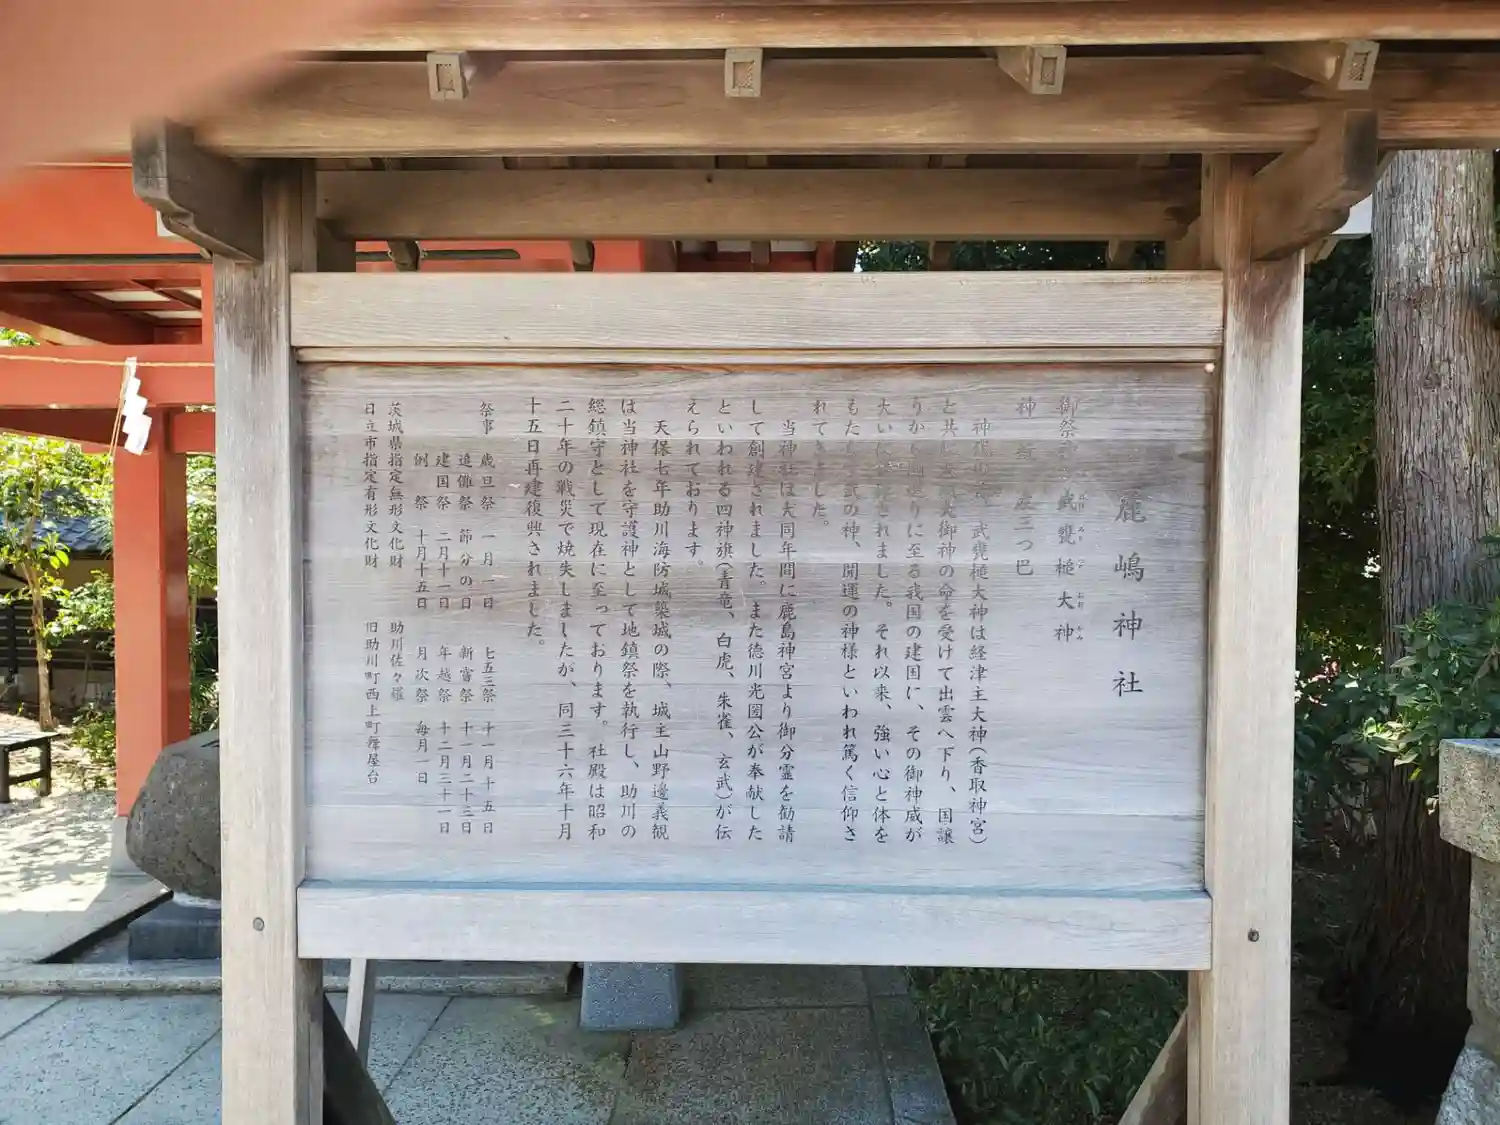 鹿嶋神社
御祭 武甕槌大神
たけみかづちおおかみ
神 左三つ巴
神代の 、武甕槌大神は経津主大神(香取神宮)
と共 大御神の命を受けて出雲へ下り、国譲
りか りに至る我国の建国に、その御神威が
大いに されました。それ以来、強い心と体を
もた 武の神、開運の神様といわれ篤く信仰さ
れてきました。
当神社は大同年間に鹿島神宮より御分霊を勧請
して創建されました。また徳川光圀公が奉献した
といわれる四神旗(青竜、白虎、朱雀、玄武)が伝
えられております。
天保七年助川海防城築城の際、城主山野邊義観
は当神社を守護神として地鎮祭を執行し、助川の
総鎮守として現在に至っております。社殿は昭和
二十年の戦災で焼失しましたが、同三十六年十月
十五日再建復興されました。
祭事 歳旦祭 一月一日 七五三祭 十一月十五日
追儺祭 節分の日 新嘗祭 十一月二十三日
建国祭 二月十一日 年越祭 十二月三十一日
例祭 十月十五日 月次祭 毎月一日
茨城県指定無形文化財 助川佐々羅
日立市指定有形文化財 旧助川町西上町舞屋台